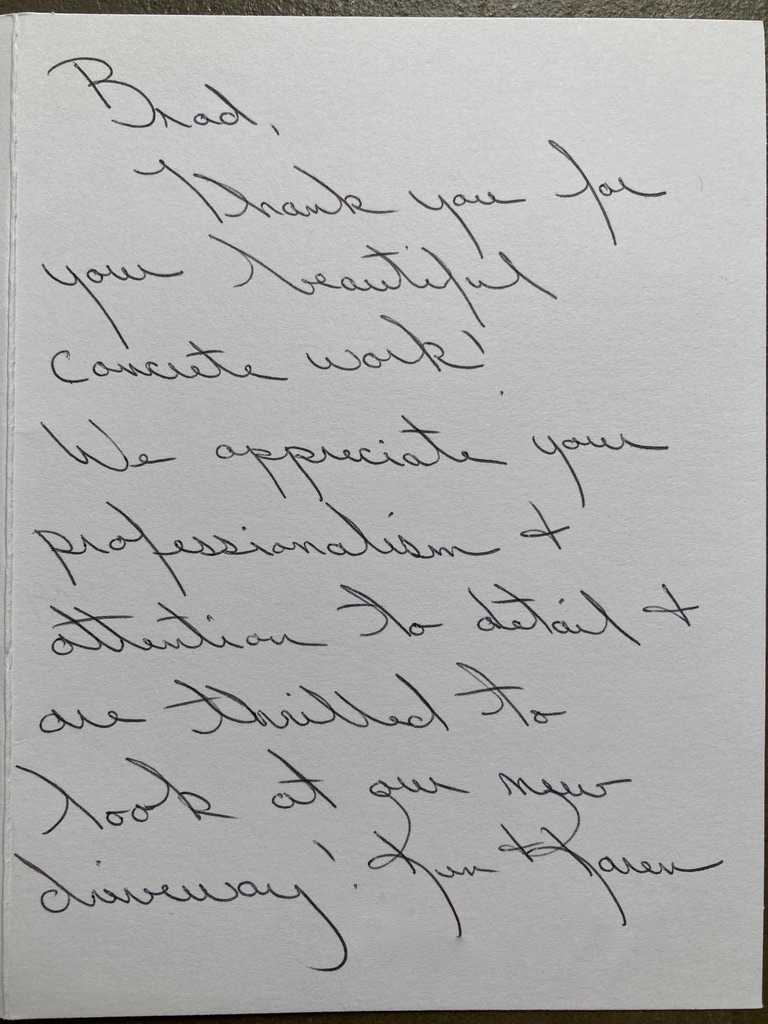 Brad,
Thank you for
your beautiful
concrete work!
We appreciate your
professionalism +
attention to detail +
are thrilled to
look at our new
driveway! Ken + Karen